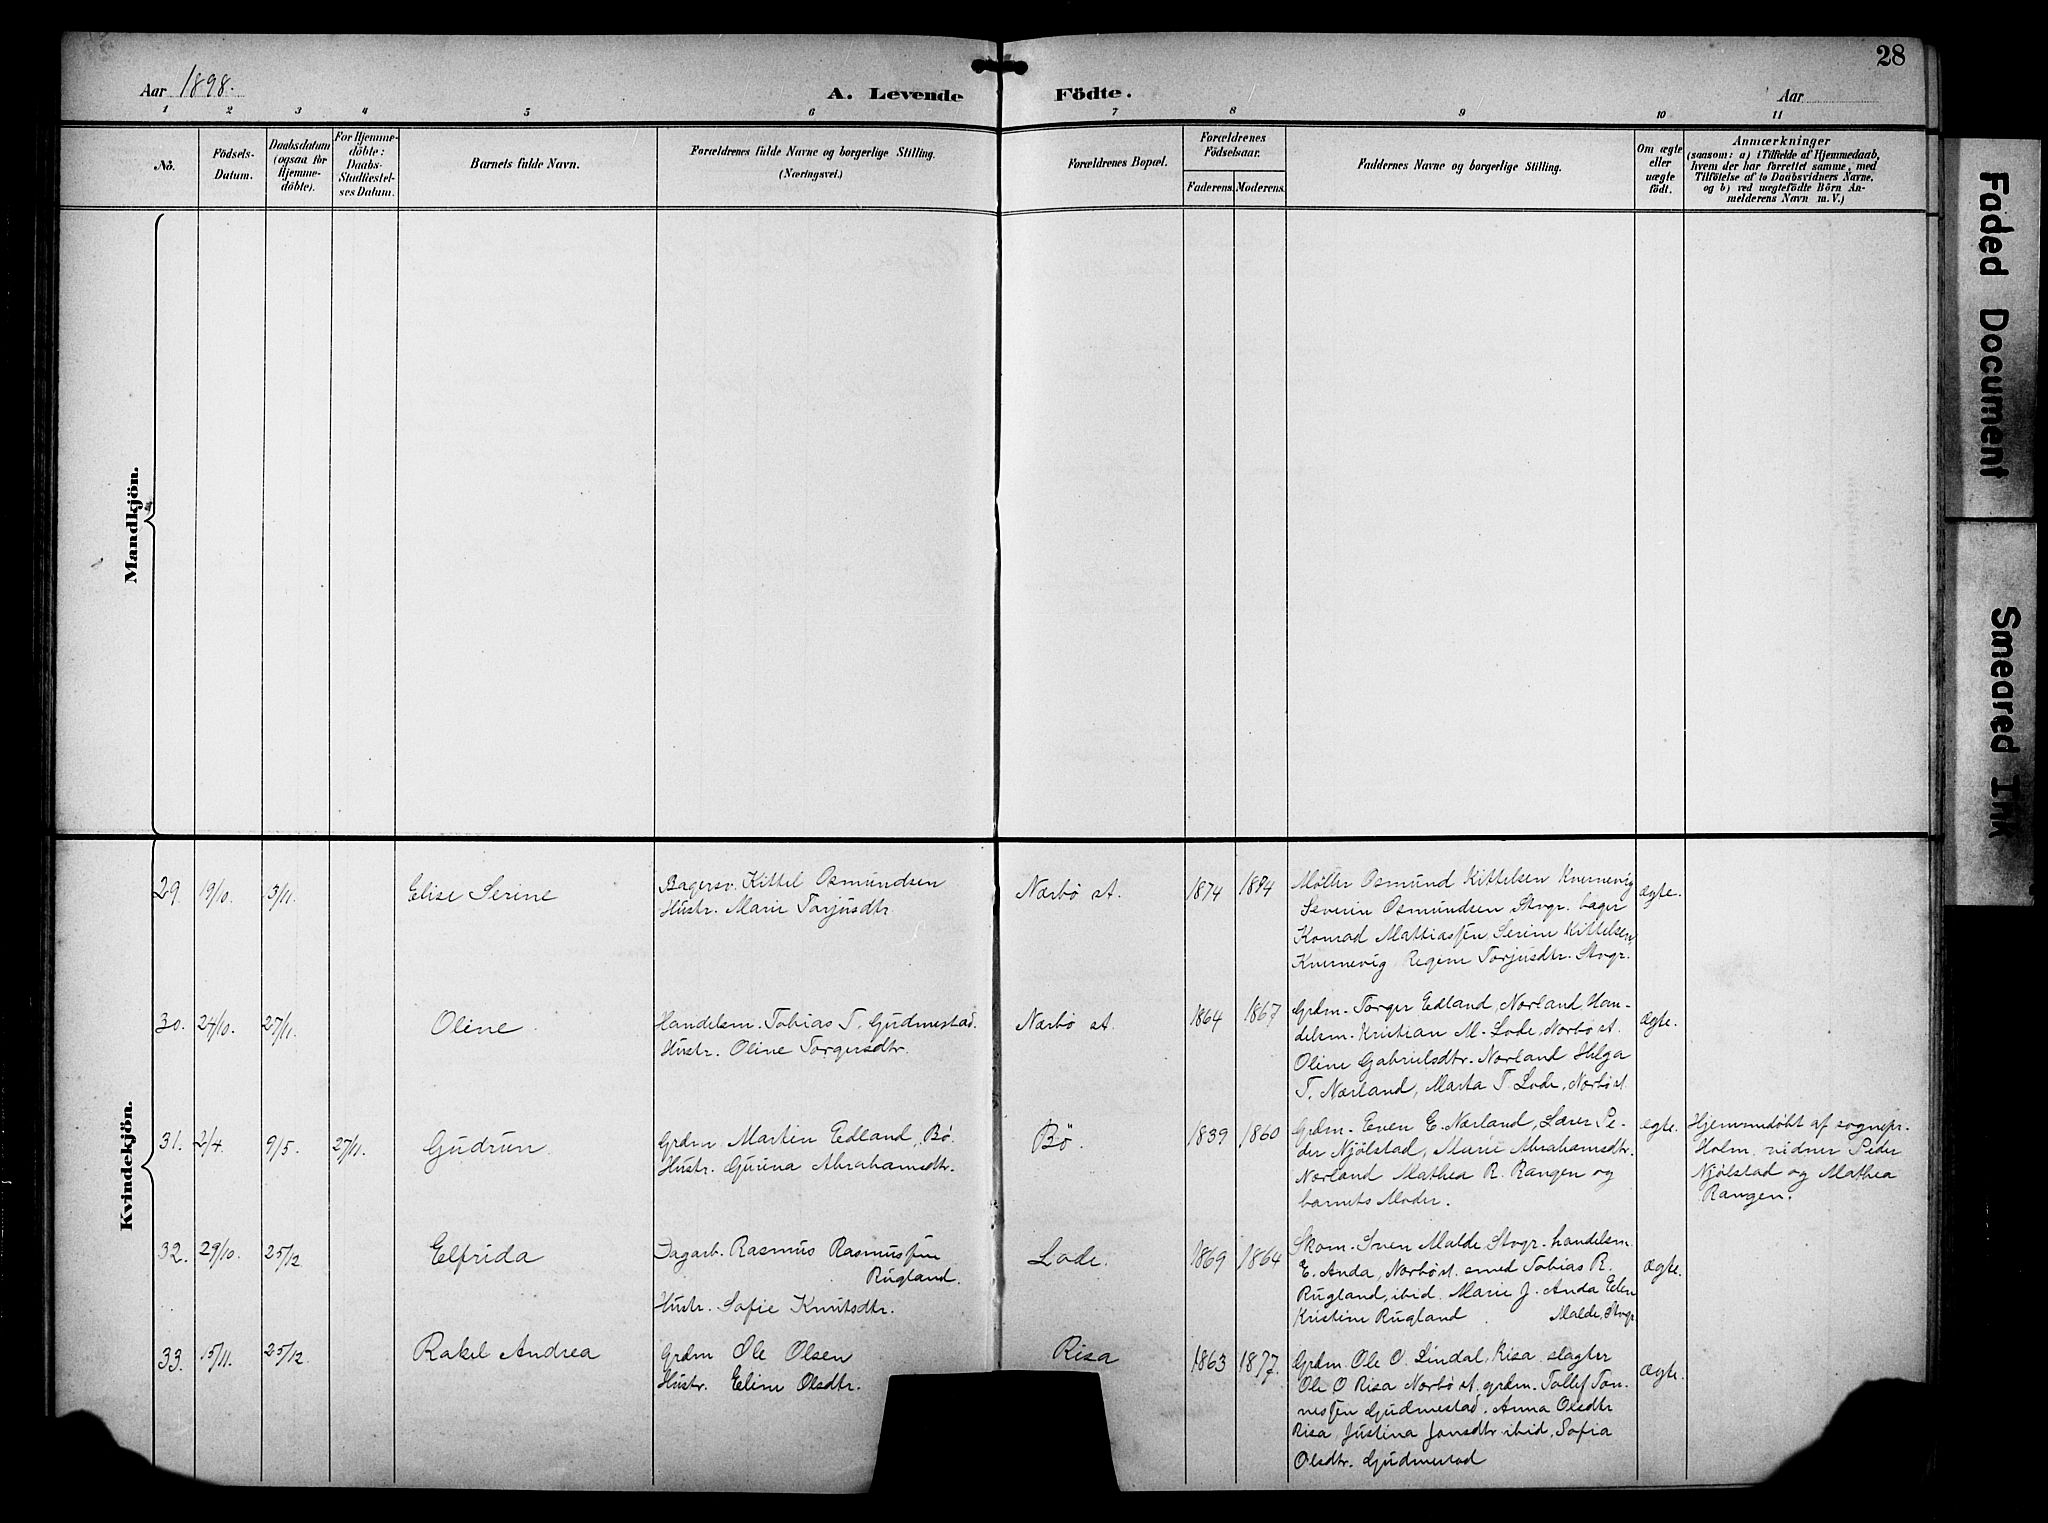 28
Aar 1898.
A. Levende Födte.
Aar
1 2 3 4 5 6 7 8 9 10 11
No.
Födsels-
Datum.
Daabsdatum
(ogsaa for
Hjemme-
döbte).
For Hjemme-
döbte:
Daabs-
Stadfæstel-
ses Datum.
Barnets fulde Navn.
Forældrenes fulde Navne og borgerlige Stilling.
(Næringsvei.)
Forældrenes Bopæl.
Forældrenes
Födselsaar.
Faderens. Moderens.
Faddernes Navne og borgerlige Stilling.
Om ægte
eller
uægte
födt.
Anmærkninger
(saasom: a) i Tilfælde af Hjemmedaab,
hvem der har forrettet samme, med
Tilföielse af to Daabsvidners Navne,
og b) ved uægtefödte Börn An-
melderens Navn m. V.)
Mandkjön.
Kvindekjön.
29. 19/10. 13/11. Elise Serine
Bagersv. Kittel Osmundsen
Hustr. Marie Torjusdtr.
Nærbø st. 1874 1894
Møller Osmund Kittelsen Kvernevig
Severin Osmundsen Stvgr. bager
Konrad Mattiassen, Serine Kittelsen
Kvernevig Regine Torjusdtr. Stvgr.
ægte.
30. 24/10. 27/11. Oline
Handelsm. Tobias T. Gudmestad.
Hustr. Oline Torgersdtr.
Nærbø st. 1864 1867
Grdm. Torger Edland, Nørland Han-
delsm. Kristian M. Lode, Nørbø st.
Oline Gabrielsdtr. Nørland Helga
T. Nærland, Marta T. Lode, Nørbø st.
ægte.
31. 2/4 9/5. 27/11. Gudrun.
Grdm. Martin Edland, Bø.
Hustr. Gurina Abrahamsdtr.
Bø. 1839 1860
Grdm. Even E. Nørland, Lærer Pe-
der Njølstad, Marie Abrahamsdtr.
Nørland Mathea R. Rangen og
barnets Moder.
ægte.
Hjemmedøbt af sognepr.
Holm. vidner Peder
Njølstad og Mathea
Rangen.
32. 29/10. 25/12 Elfrida
Dagarb. Rasmus Rasmussen
Rugland.
Hustr. Sofie Knutsdtr.
Lode. 1869 1864
Skom. Sven Malde Stvgr. handelsm.
E. Anda, Nørbø st. smed Tobias R.
Rugland, ibid. Marie J. Anda Elen
Kristine Rugland. Malde, Stvgr
ægte.
33. 15/11. 25/12. Rakel Andrea
Grdm Ole Olsen
Hustr. Eline Olsdtr.
Risa 1863 1877.
Grdm. Ole O. Lindal, Risa, slagter
Ole O Risa Nørbø st. grdm. Tollef Ton-
nessen Gudmestad. Anna Olsdtr
Risa, Justina Jonsdtr ibid, Sofia
Olsdtr. Gudmestad
ægte.
Faded Document
Smeared Ink